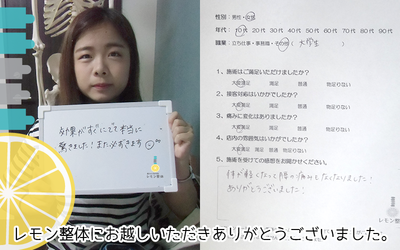 効果がすぐにでて本当に
驚きました！また必ずきます
レモン整体
性別：男性・女性
年代：10代 20代 30代 40代 50代 60代 70代 80代 90代
職業：立ち仕事・事務職・その他（大学生）
1、施術はご満足いただけましたか？
大変満足 満足 普通 物足りない
2、接客対応はいかがでしたか？
大変満足 満足 普通 物足りない
3、痛みに変化はありましたか？
大変満足 満足 普通 物足りない
4、店内の雰囲気はいかがでしたか？
大変満足 満足 普通 物足りない
5、施術を受けての感想をお聞かせください。
体が軽くなって腰の痛みもなくなりました！
ありがとうございました！
レモン整
レモン整体にお越しいただきありがとうございました。